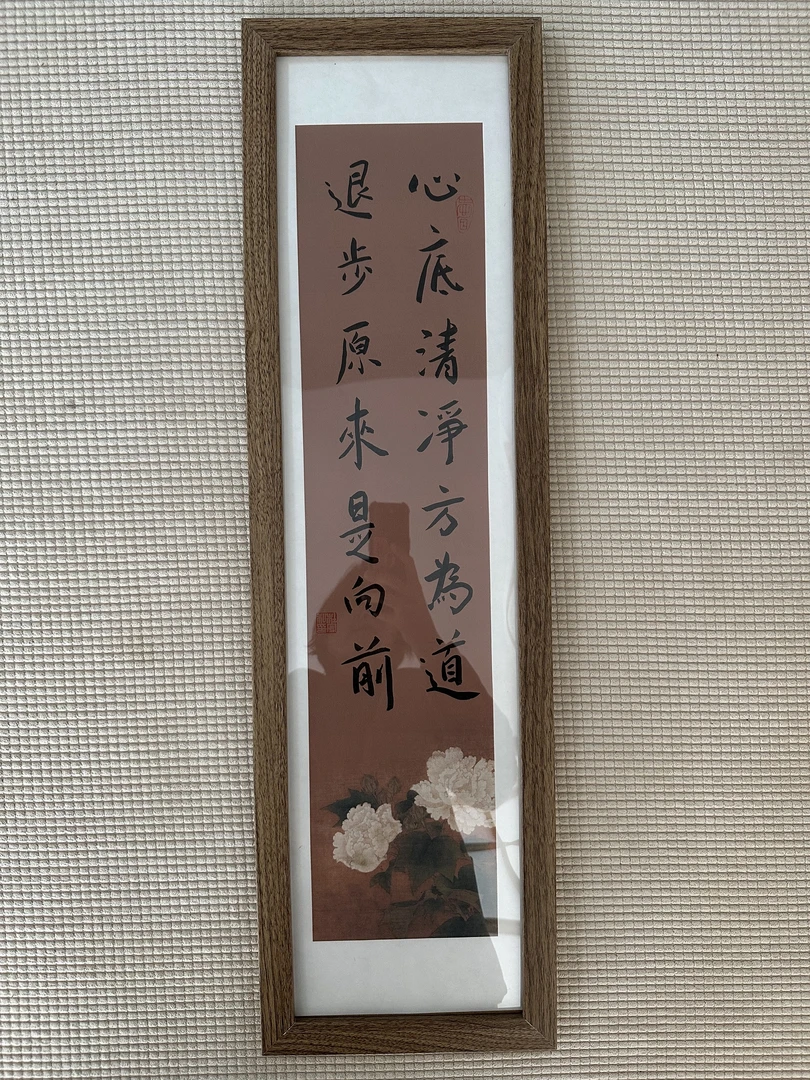 心底清淨方為道
退步原來是向前